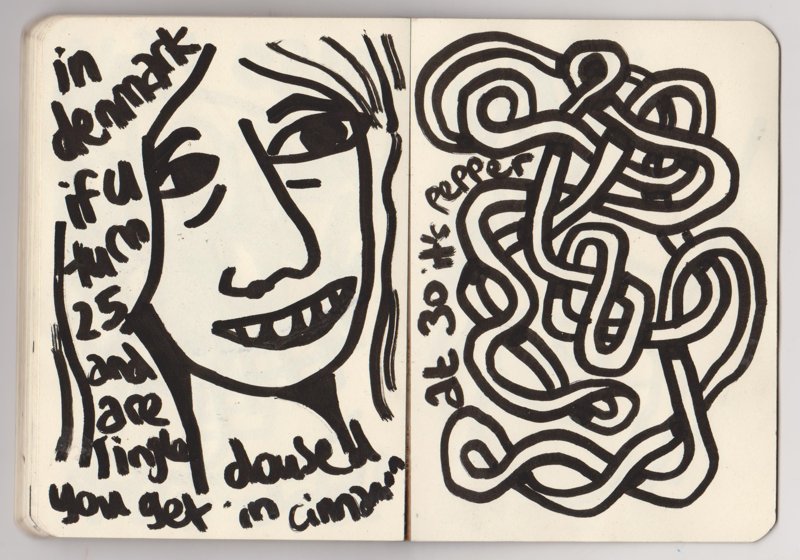 in
denmark
if u
turn
25
and
are
Single
you get
doused
in cinnamon
at 30 it's pepper